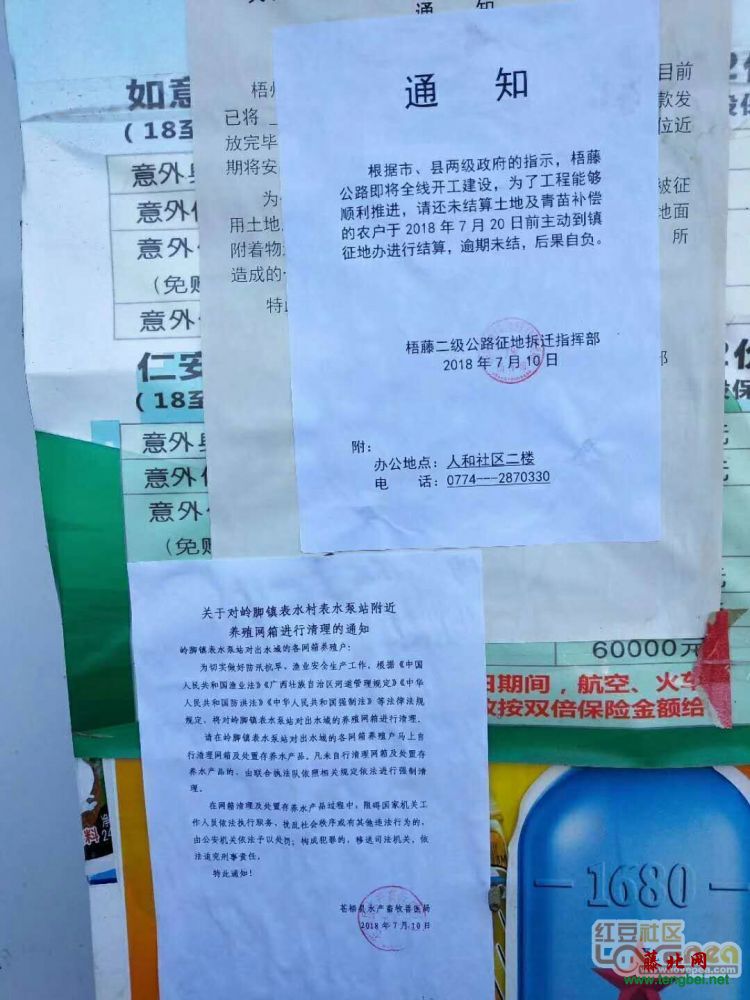 通知
通 知
根据市、县两级政府的指示，梧藤
公路即将全线开工建设，为了工程能够
顺利推进，请还未结算土地及青苗补偿
的农户于 2018 年 7 月 20 日前主动到镇
征地办进行结算，逾期未结，后果自负。
梧藤二级公路征地拆迁指挥部
2018 年 7 月 10 日
附：
办公地点：人和社区二楼
电 话：0774---2870330
梧
目前
已将
款发
放完毕
位近
期将安
为
被征
用土地
地面
附着物
所
造成的
特此
部
如意
(18至
意外
意外
意外
(免赔
意外
仁安
(18至
意外
意外
意外
(免
60000元
日期间，航空、火车
按双倍保险金额给
关于对岭脚镇表水村表水泵站附近
养殖网箱进行清理的通知
岭脚镇表水泵站对出水域的各网箱养殖户：
为切实做好防汛抗旱、渔业安全生产工作，根据《中国
人民共和国渔业法》《广西壮族自治区河道管理规定》《中华
人民共和国防洪法》《中华人民共和国强制法》等法律法规
规定，将对岭脚镇表水泵站对出水域的养殖网箱进行清理。
请在岭脚镇表水泵站对出水域的各网箱养殖户马上自
行清理网箱及处置存养水产品。凡未自行清理网箱及处置存
养水产品的，由联合执法队依照相关规定依法进行强制清
理。
在网箱清理及处置存养水产品过程中，阻碍国家机关工
作人员依法执行职务、扰乱社会秩序或有其他违法行为的，
由公安机关依法予以处罚；构成犯罪的，移送司法机关，依
法追究刑事责任。
特此通知！
苍梧县水产畜牧兽医局
2018 年 7 月 10 日
1680
红豆社区
www.lovepea.com
藤北网
www.tengbei.net